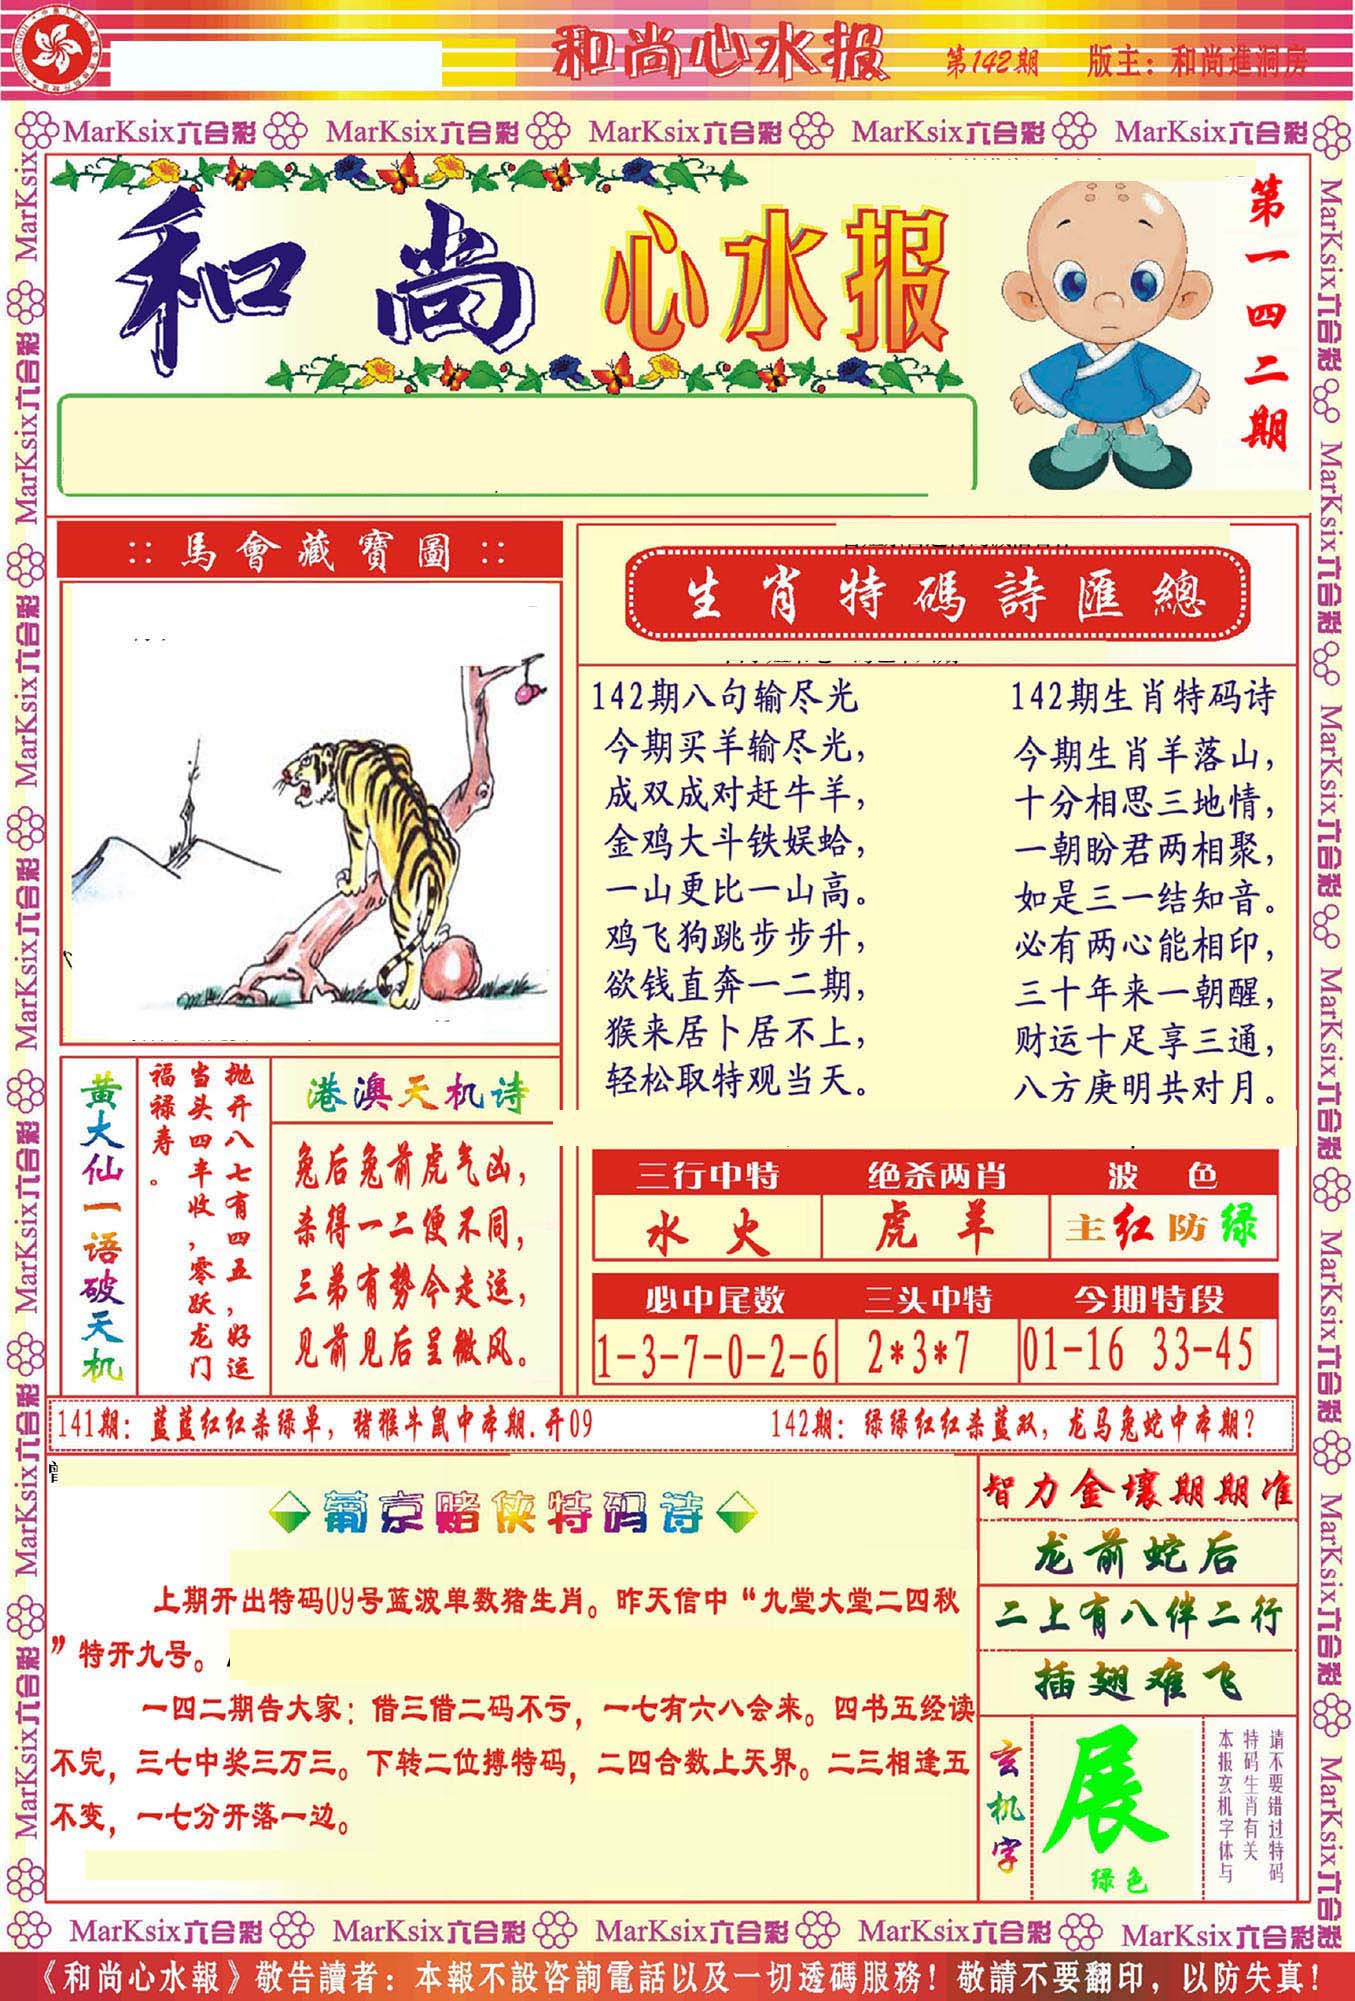 和尚心水报 第142期 版主：和尚進洞房
MarKsix六合彩 MarKsix六合彩 MarKsix六合彩 MarKsix六合彩 MarKsix六合彩
和尚心水报
第一四二期
::馬會藏寶圖::
生肖特碼詩匯總
142期八句输尽光
今期买羊输尽光，
成双成对赶牛羊，
金鸡大斗铁娱蛤，
一山更比一山高。
鸡飞狗跳步步升，
欲钱直奔一二期，
猴来居卜居不上，
轻松取特观当天。
142期生肖特码诗
今期生肖羊落山，
十分相思三地情，
一朝盼君两相聚，
如是三一结知音。
必有两心能相印，
三十年来一朝醒，
财运十足享三通，
八方庚明共对月。
黄大仙一语破天机
抛开八七有四五，好运
当头四丰收，零跃龙门
福禄寿。
港澳天机诗
兔后兔前虎气凶，
杀得一二便不同，
三弟有势今走运，
见前见后呈微风。
三行中特 绝杀两肖 波 色
水 火 虎 羊 主红防绿
必中尾数 三头中特 今期特段
1-3-7-0-2-6 2*3*7 01-16 33-45
141期：蓝蓝红红杀绿单，猪猴牛鼠中本期.开09 142期：绿绿红红杀蓝双，龙马兔蛇中本期？
葡京赌侠特码诗
上期开出特码09号蓝波单数猪生肖。昨天信中“九堂大堂二四秋
”特开九号。
一四二期告大家：借三借二码不亏，一七有六八会来。四书五经读
不完，三七中奖三万三。下转二位搏特码，二四合数上天界。二三相逢五
不变，一七分开落一边。
智力金壤期期准
龙前蛇后
二上有八伴二行
插翅难飞
玄机字
展
绿色
请不要错过特码
特码生肖有关
本报玄机字体与
MarKsix六合彩 MarKsix六合彩 MarKsix六合彩 MarKsix六合彩 MarKsix六合彩
《和尚心水報》敬告讀者：本報不設咨詢電話以及一切透碼服務！敬請不要翻印，以防失真！